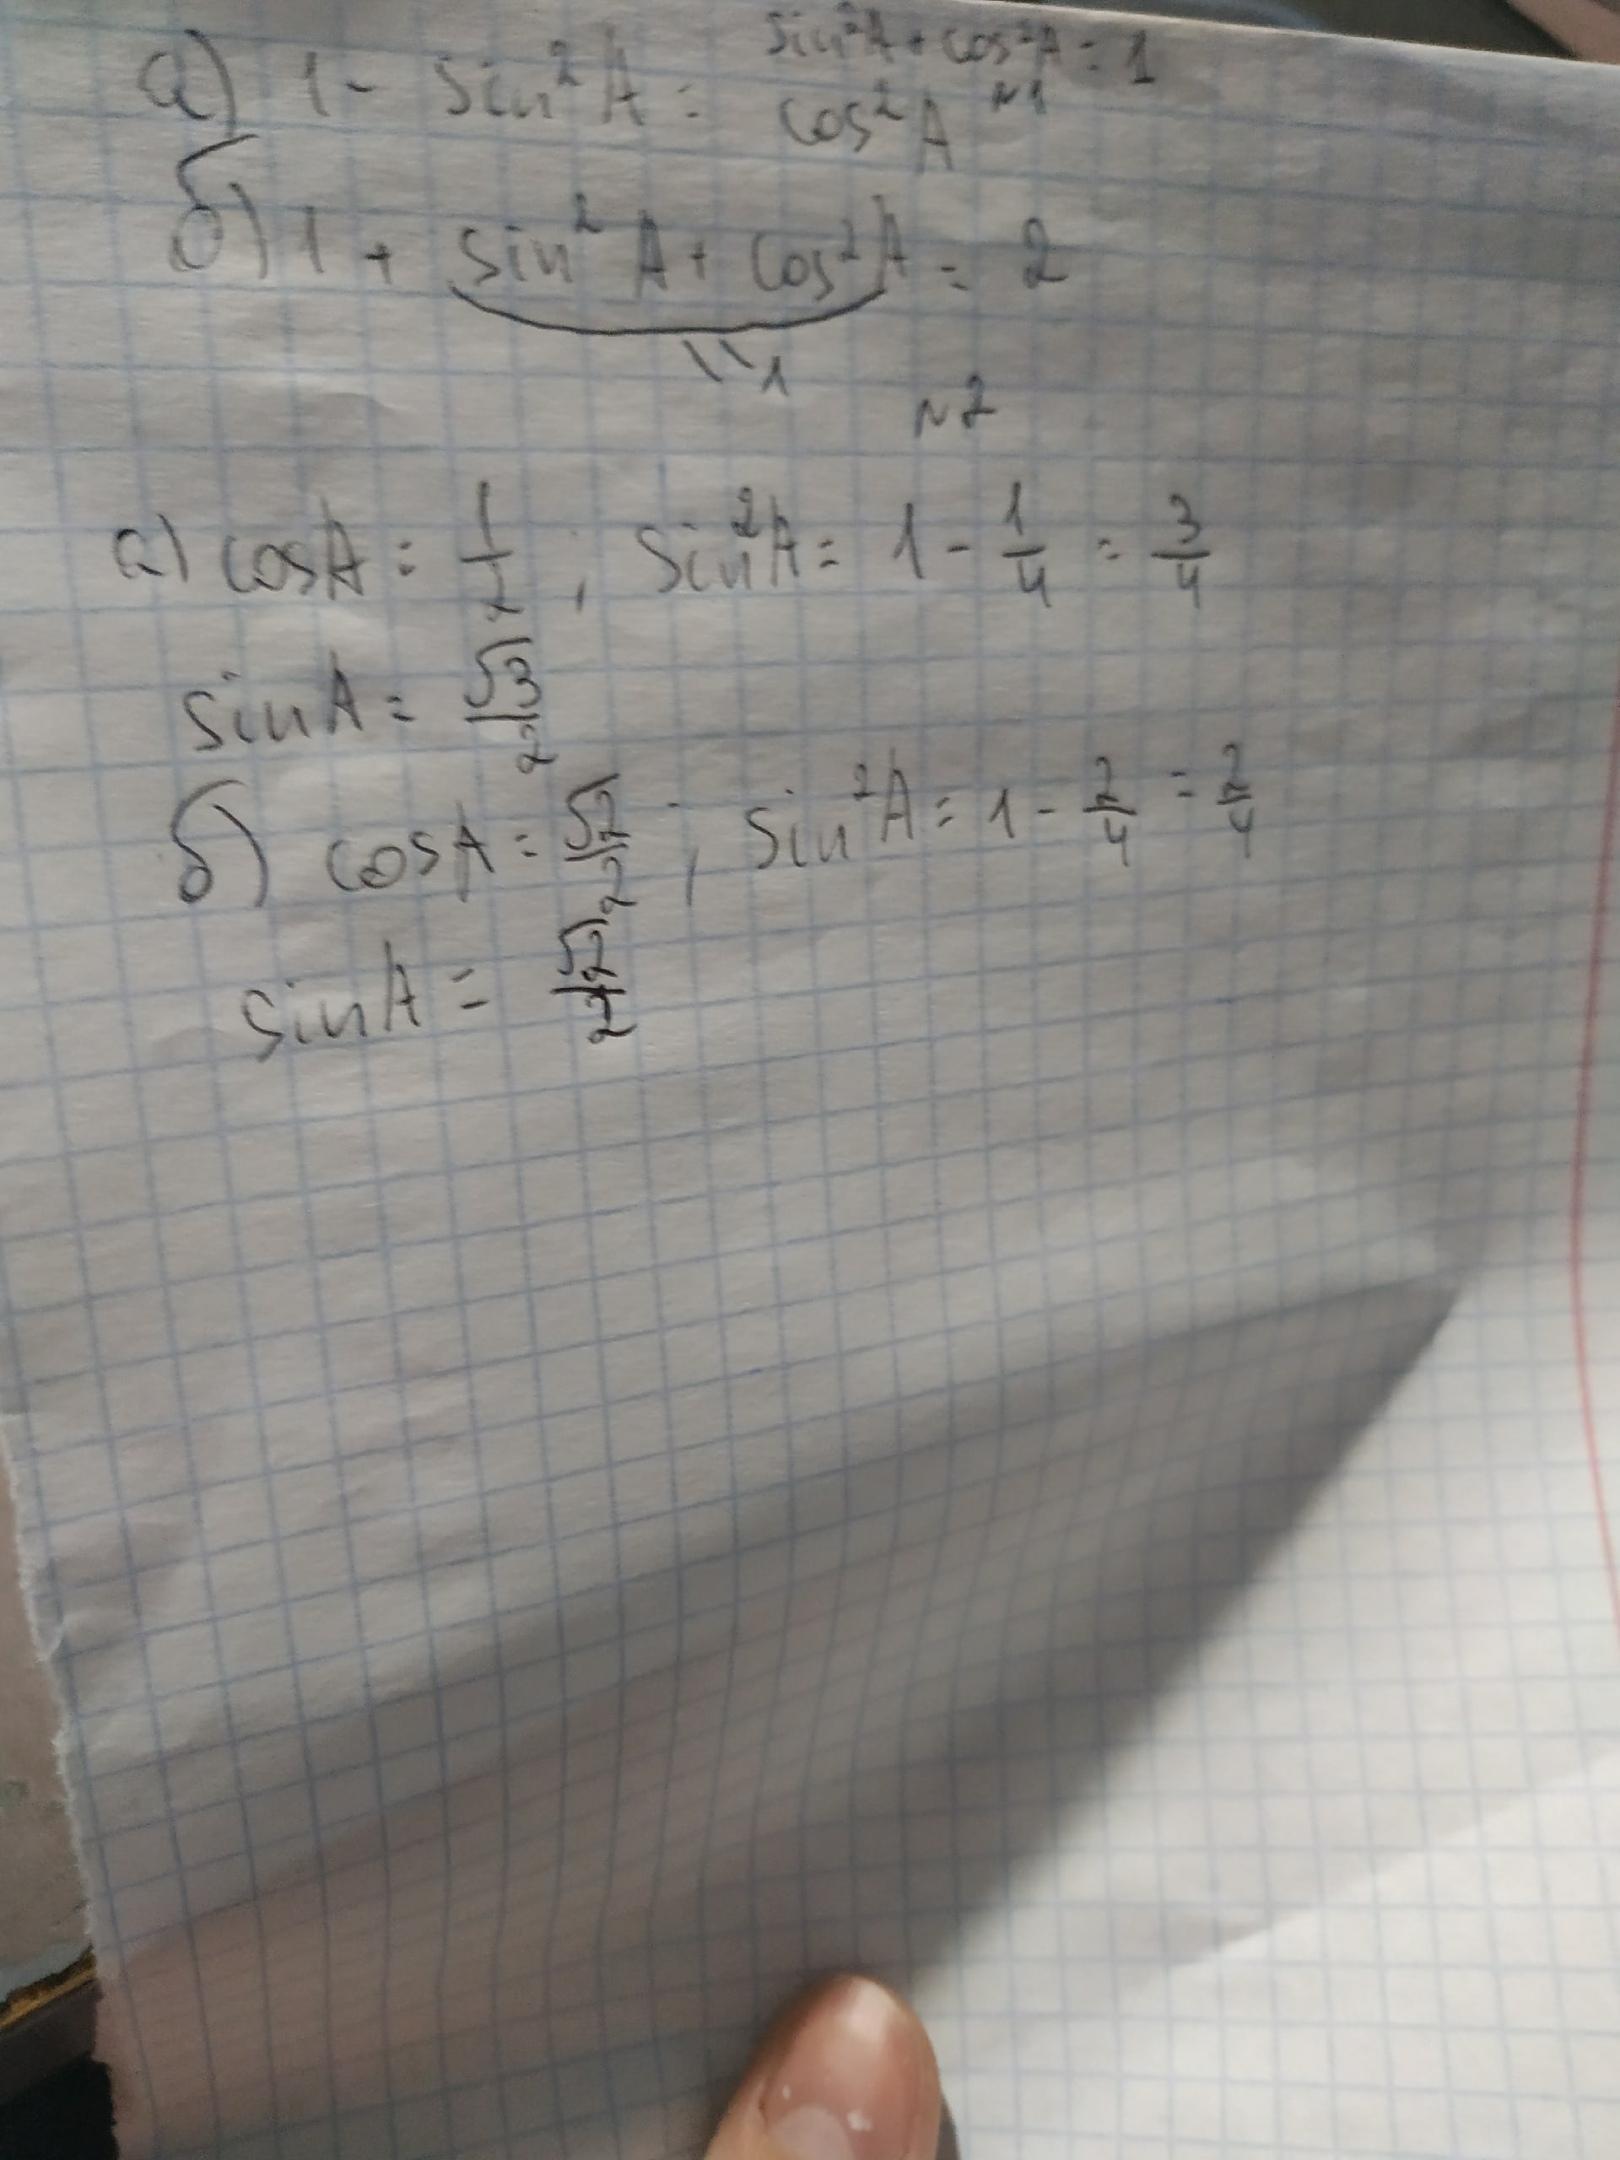 sin²A + cos²A = 1
№1
а) 1 - sin²A = cos²A
б) 1 + sin²A + cos²A = 2
\\ 1
№2
а) cosA = 1/2 ; sin²A = 1 - 1/4 = 3/4
sinA = √3/2
б) cosA = √2/2 ; sin²A = 1 - 2/4 = 2/4
sinA = √2/2